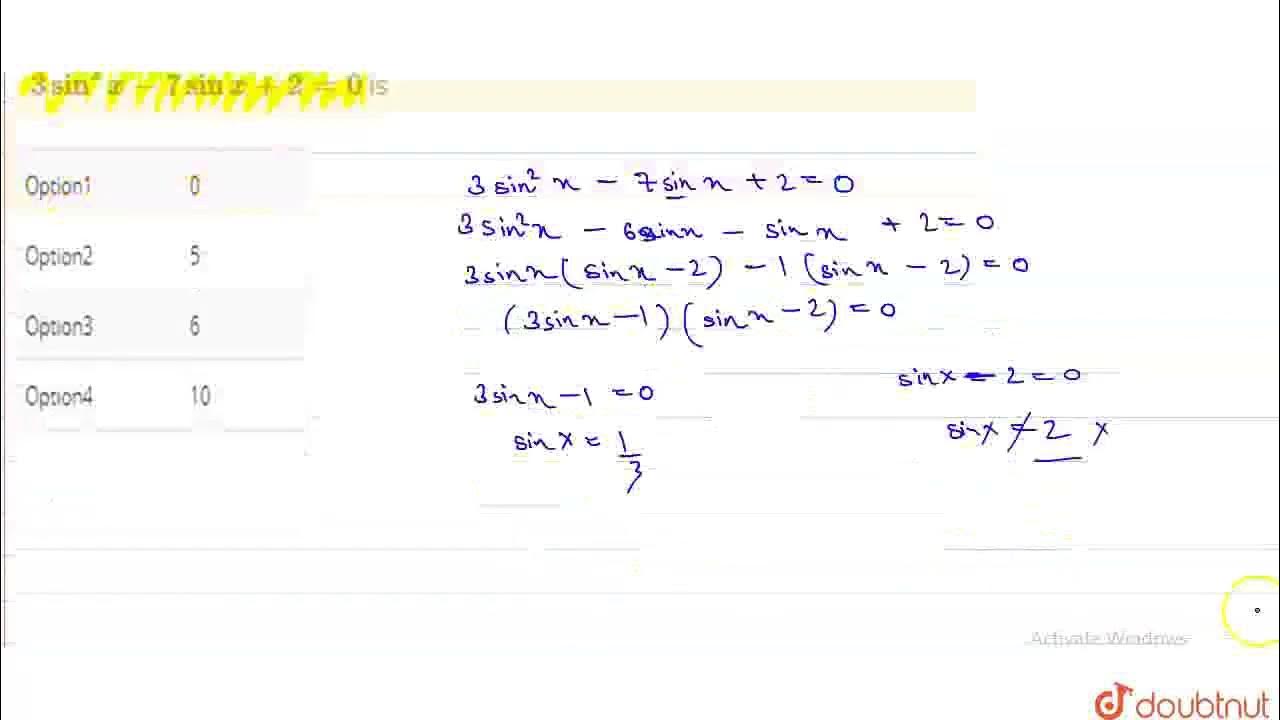 3 sin² x − 7 sin x + 2 = 0 is
Option1 0
Option2 5
Option3 6
Option4 10
3 sin² x − 7 sin x + 2 = 0
3 sin² x − 6 sin x − sin x + 2 = 0
3 sin x (sin x − 2) − 1 (sin x − 2) = 0
(3 sin x − 1) (sin x − 2) = 0
3 sin x − 1 = 0
sin x = 1/3
sin x − 2 = 0
sin x ≠ 2 x
Activate Windows
doubtnut